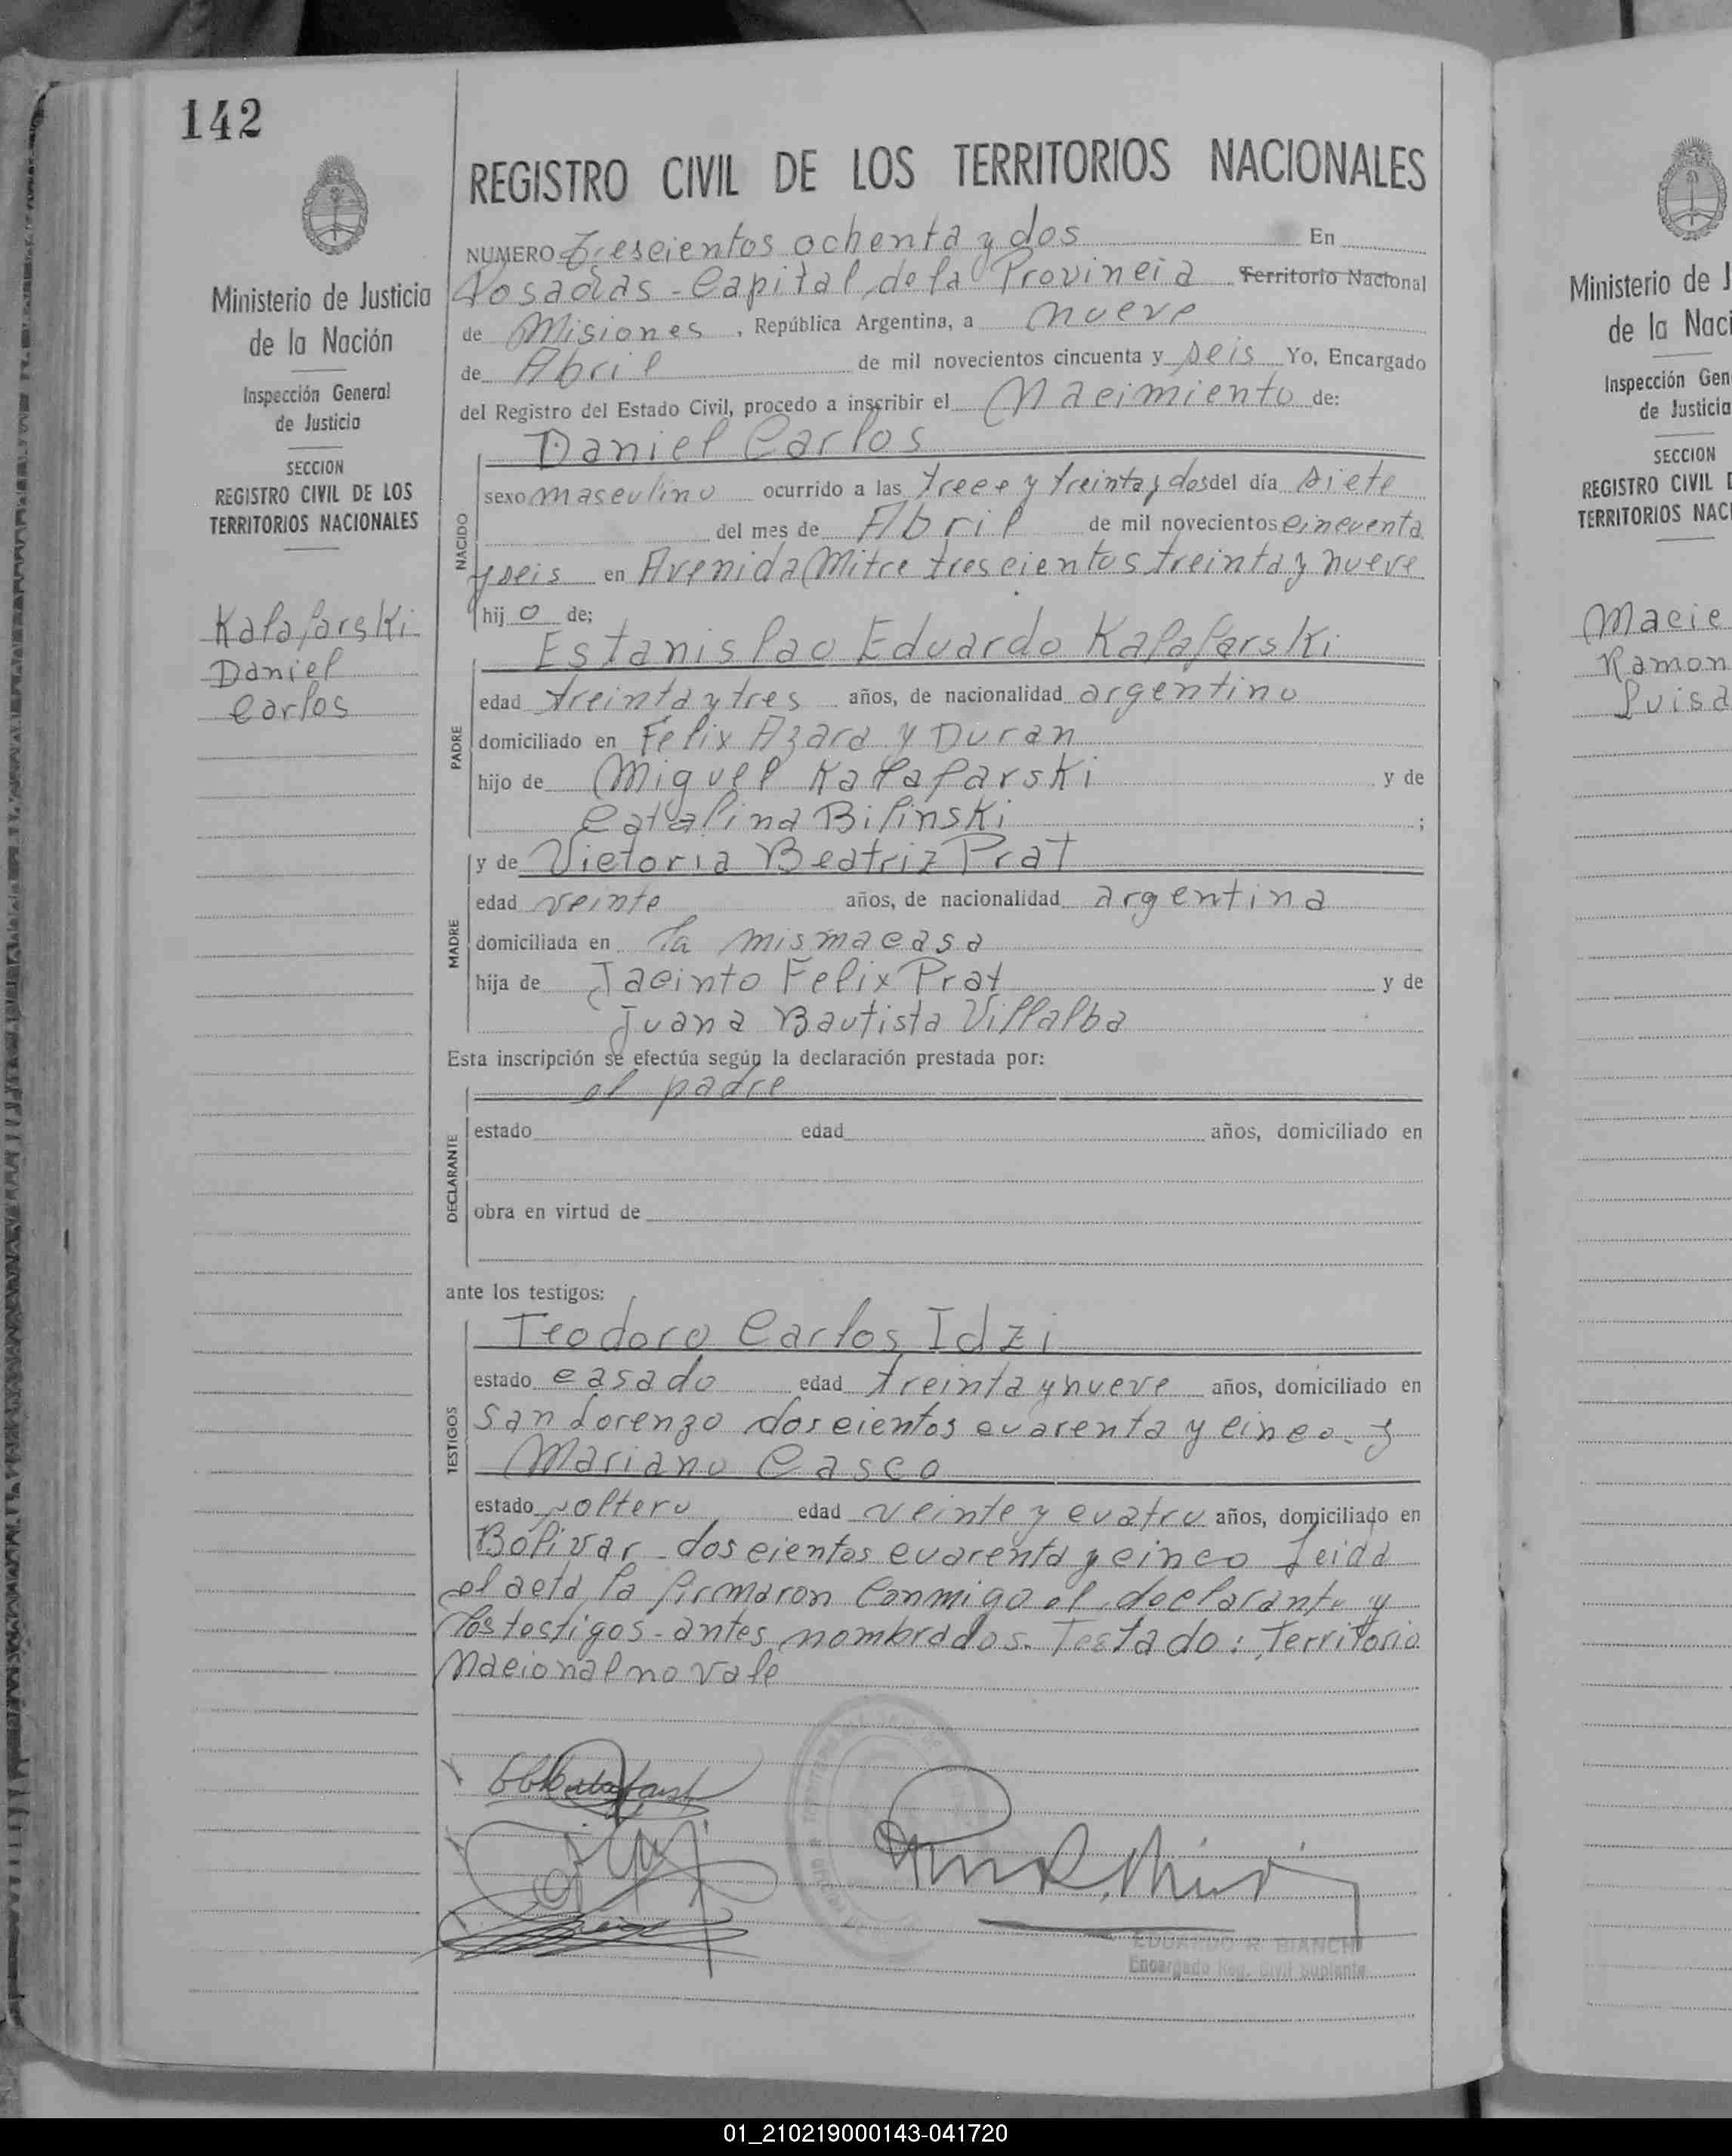 142
REGISTRO CIVIL DE LOS TERRITORIOS NACIONALES
Ministerio de Justicia
de la Nación
Inspección General
de Justicia
SECCION
REGISTRO CIVIL DE LOS
TERRITORIOS NACIONALES
Kalafarski
Daniel
Carlos
NUMERO trescientos ochenta y dos En
Posadas - Capital de la Provincia Territorio Nacional
de Misiones, República Argentina, a nueve
de Abril de mil novecientos cincuenta y seis Yo, Encargado
del Registro del Estado Civil, procedo a inscribir el Nacimiento de:
NACIDO
Daniel Carlos
sexo masculino ocurrido a las trece y treinta y dos del día siete
del mes de Abril de mil novecientos cincuenta
y seis en Avenida Mitre trescientos treinta y nueve
hijo de;
PADRE
Estanislao Eduardo Kalafarski
edad treinta y tres años, de nacionalidad argentino
domiciliado en Felix Azara y Duran
hijo de Miguel Kalafarski y de
Catalina Bilinski ;
MADRE
y de Victoria Beatriz Prat
edad veinte años, de nacionalidad argentina
domiciliada en la misma casa
hija de Jacinto Felix Prat y de
Juana Bautista Villalba
Esta inscripción se efectúa según la declaración prestada por:
DECLARANTE
el padre
estado edad años, domiciliado en
obra en virtud de
ante los testigos:
TESTIGOS
Teodoro Carlos Idzi
estado casado edad treinta y nueve años, domiciliado en
San Lorenzo doscientos cuarenta y cinco - y
Mariano Casco
estado soltero edad veinte y cuatro años, domiciliado en
Bolivar - doscientos cuarenta y cinco Leida
el acta la firmaron Conmigo el declarante y
los testigos - antes nombrados. Testado: Territorio
Nacional no vale
EDUARDO R. BIANCHI
Encargado Reg. Civil Suplente
Ministerio de J
de la Naci
Inspección Gen
de Justicia
SECCION
REGISTRO CIVIL D
TERRITORIOS NACI
Macie
Ramon
Luisa
01_210219000143-041720